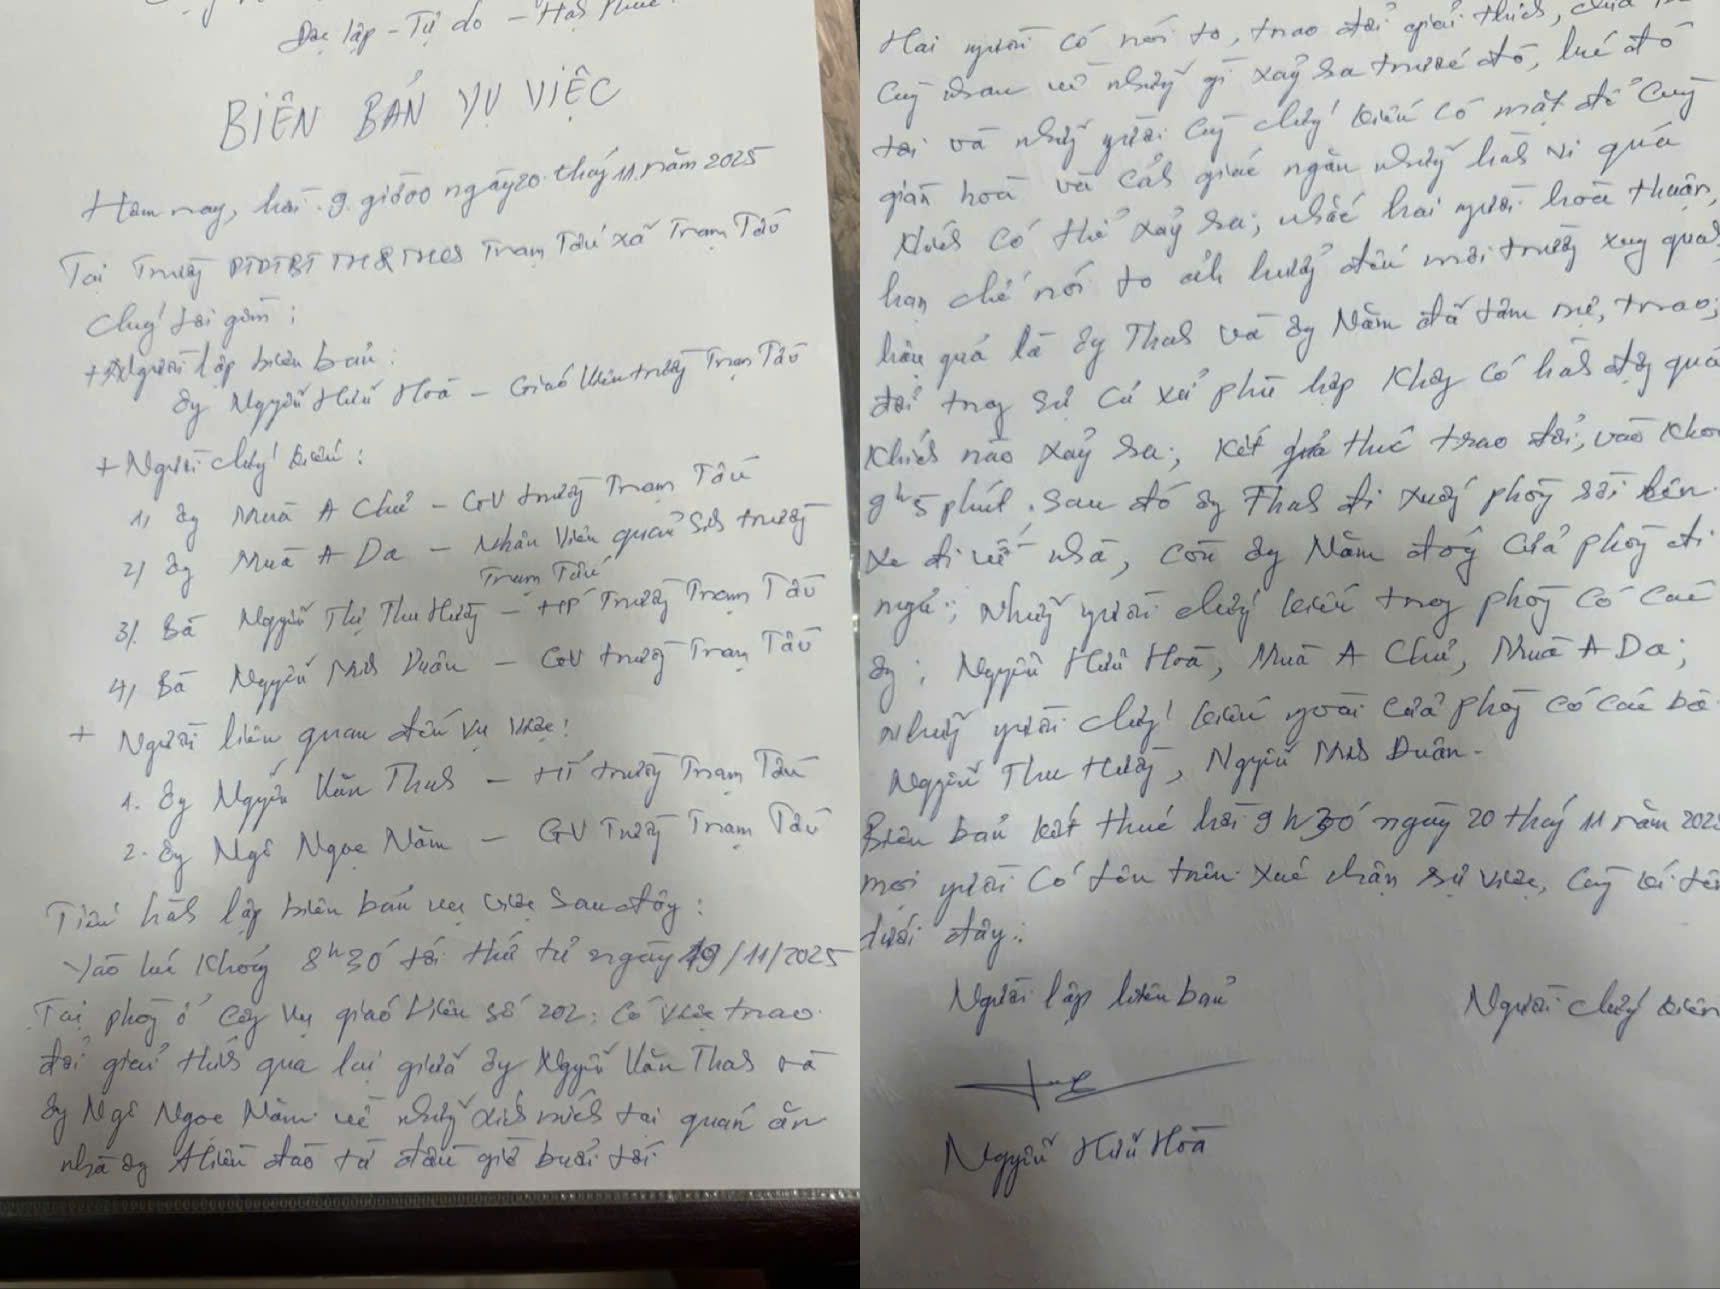 Độc lập - Tự do - Hạnh Phúc
BIÊN BẢN VỤ VIỆC
Hôm nay, hồi 9 giờ 00 ngày 20 tháng 11 năm 2025
Tại Trường PTDTBT TH&THCS Trạm Tấu xã Trạm Tấu
Chúng tôi gồm:
+ Người lập biên bản:
Ông Nguyễn Hữu Hoà - Giáo viên trường Trạm Tấu
+ Người chứng kiến:
1, Ông Mùa A Chư - GV trường Trạm Tấu
2, Ông Mùa A Da - Nhân viên quản sinh trường
Trạm Tấu
3, Bà Nguyễn Thị Thu Hường - HP trường Trạm Tấu
4, Bà Nguyễn Minh Duân - GV trường Trạm Tấu
+ Người liên quan đến vụ việc:
1. Ông Nguyễn Văn Thanh - HT trường Trạm Tấu
2. Ông Ngô Ngọc Năm - GV Trường Trạm Tấu
Tiến hành lập biên bản vụ việc sau đây:
Vào lúc khoảng 8h30 tối thứ tư ngày 19/11/2025
Tại phòng ở công vụ giáo viên số 202: Có việc trao
đổi giải thích qua lại giữa ông Nguyễn Văn Thanh và
ông Ngô Ngọc Năm về những xích mích tại quán ăn
nhà ông Hiền đào từ đầu giờ buổi tối
Hai người có nói to, trao đổi giải thích,
cùng nhau về những gì xảy ra trước đó, lúc đó
tôi và những người cùng chứng kiến có mặt để cùng
giản hoà và cảnh giác ngăn những hành vi quá
khích có thể xảy ra; nhắc hai người hoà thuận,
hạn chế nói to ảnh hưởng đến môi trường xung quanh,
hậu quả là ông Thanh và ông Năm đã tâm sự, trao
đổi trong sự cư xử phù hợp không có hành động quá
khích nào xảy ra; kết quả thúc trao đổi, vào khoảng
9h5 phút. Sau đó ông Thanh đi xuống phòng rồi lên
xe đi về nhà, còn ông Năm đóng cửa phòng đi
ngủ; Những người chứng kiến trong phòng có các
ông: Nguyễn Hữu Hoà, Mùa A Chư, Mùa A Da;
Những người chứng kiến ngoài cửa phòng có các bà
Nguyễn Thu Hường, Nguyễn Minh Duân.
Biên bản kết thúc hồi 9h30 ngày 20 tháng 11 năm 2025
mọi người có tên trên xác nhận sự việc, cùng kí tên
dưới đây:
Người lập biên bản Người chứng kiến
Nguyễn Hữu Hoà